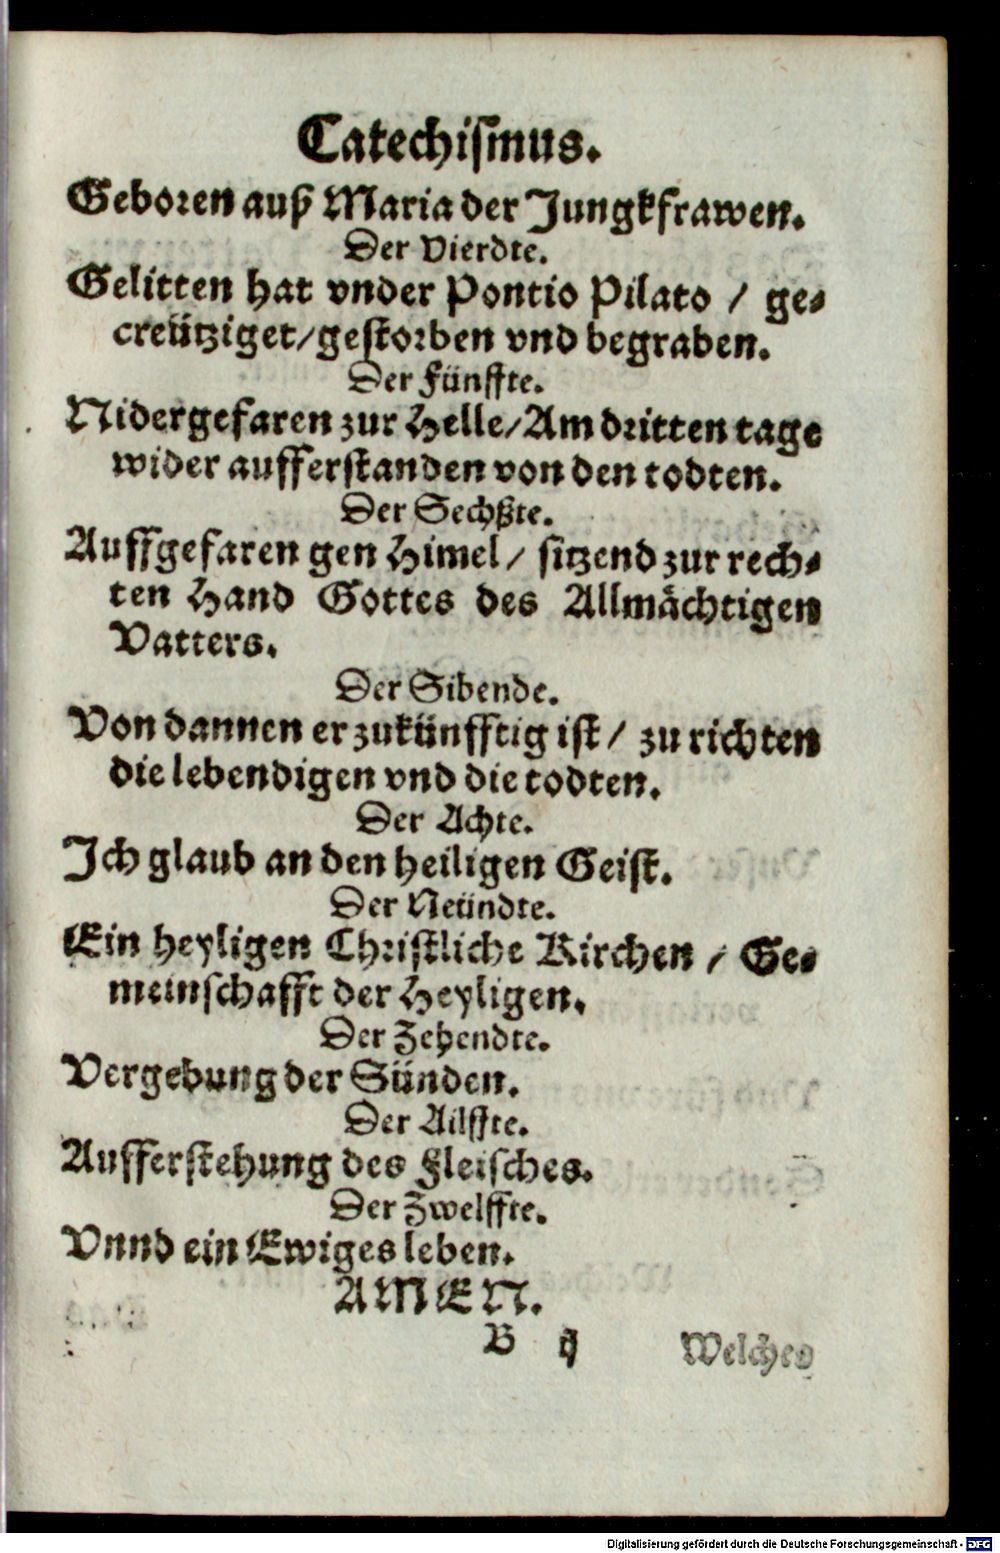 Catechismus.
Geboren auß Maria der Jungkfrawen.
Der Vierdte.
Gelitten hat vnder Pontio Pilato / ge-
creütziget/gestorben vnd begraben.
Der Fünffte.
Nidergefaren zur Helle/Am dritten tage
wider aufferstanden von den todten.
Der Sechßte.
Auffgefaren gen Himel/ sitzend zur rech-
ten Hand Gottes des Allmächtigen
Vatters.
Der Sibende.
Von dannen er zukünfftig ist/ zu richten
die lebendigen vnd die todten.
Der Achte.
Ich glaub an den heiligen Geist.
Der Neündte.
Ein heyligen Christliche Kirchen / Ge-
meinschafft der Heyligen.
Der Zehendte.
Vergebung der Sünden.
Der Ailffte.
Aufferstehung des Fleisches.
Der Zwelffte.
Vnnd ein Ewiges leben.
AMEN.
B ij Welches
Digitalisierung gefördert durch die Deutsche Forschungsgemeinschaft - DFG